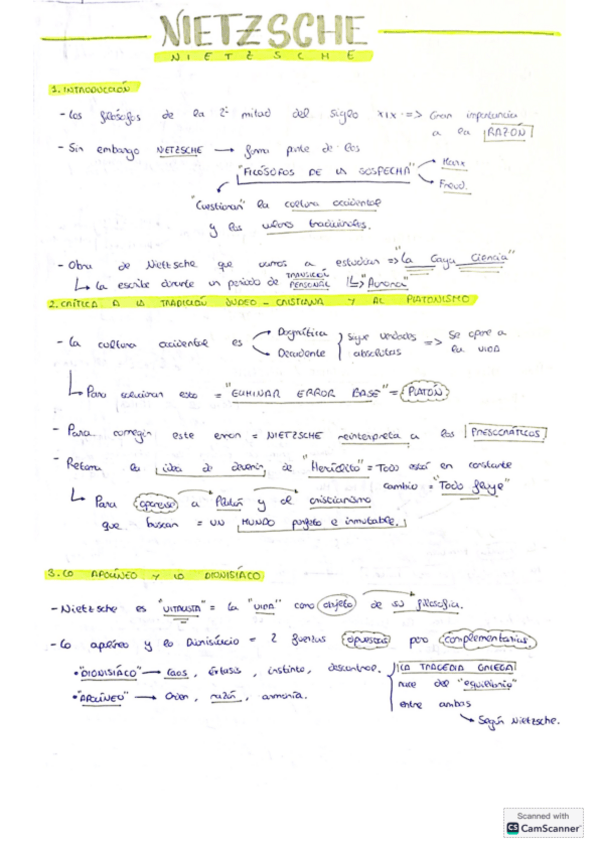 NIETZSCHE
NIETZSCHE
1. INTRODUCCIÓN
- Los filósofos de la 2ª mitad del siglo XIX => Gran importancia
a la RAZÓN
- Sin embargo NIETZSCHE → forma parte de los
"FILÓSOFOS DE LA SOSPECHA"
Marx
Freud.
"Cuestionan" la cultura occidental
y los valores tradicionales.
- Obra de Nietzsche que vamos a estudiar => "La Gaya Ciencia"
La escribe durante un periodo de TRANSICIÓN PERSONAL "Aurora"
2. CRÍTICA A LA TRADICIÓN JUDEO - CRISTIANA Y AL PLATONISMO
- La cultura occidental es
Dogmática
Decadente
Sigue verdades
absolutas
=> Se opone a
la VIDA
Para solucionar esto = "ELIMINAR ERROR BASE" = PLATÓN
- Para corregir este error = NIETZSCHE reinterpreta a los PRESOCRÁTICOS
- Retoma la idea de devenir, de "Heráclito" = Todo está en constante
cambio = "Todo fluye"
Para oponerse a Platón y al cristianismo
que buscan = UN MUNDO perfecto e inmutable.
3. LO APOLÍNEO Y LO DIONISÍACO
- Nietzsche es "VITALISTA" = la "VIDA" como objeto de su filosofía.
- Lo apolíneo y lo Dionisíacio = 2 fuerzas opuestas pero complementarias
• "DIONISÍACO" → Caos, Éxtasis, instinto, descontrol.
• "APOLÍNEO" → Orden, razón, armonía.
LA TRAGEDIA GRIEGA
nace del "equilibrio"
entre ambas
→ Según Nietzsche.
Scanned with
CS CamScanner